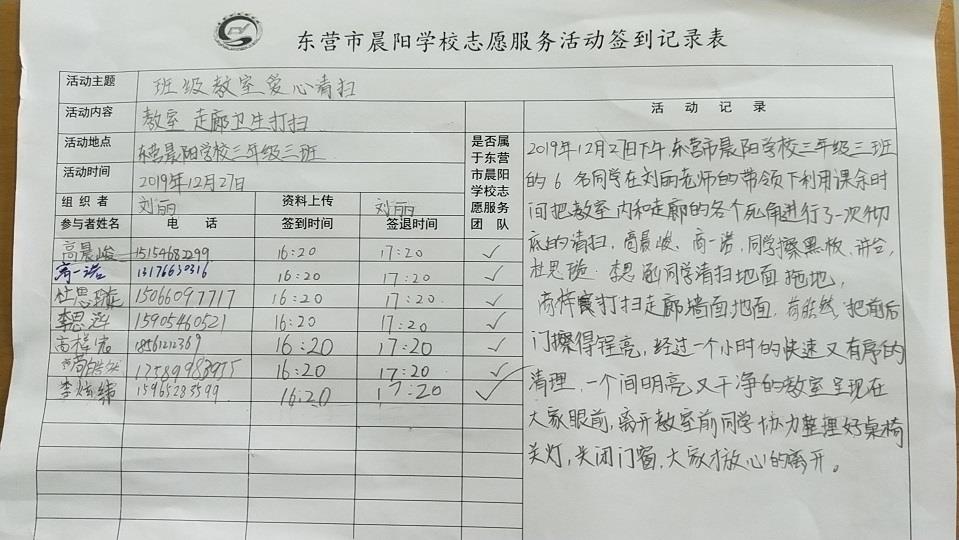 东营市晨阳学校志愿服务活动签到记录表
活动主题 班级教室爱心清扫
活动内容 教室 走廊卫生打扫
活动地点 东营晨阳学校三年级三班
活动时间 2019年12月27日
组织者 刘丽 资料上传 刘丽
参与者姓名 电话 签到时间 签退时间 是否属于东营市晨阳学校志愿服务团队
高晨峻 15154682299 16:20 17:20 ✓
商一诺 13176630316 16:20 17:20 ✓
杜思璇 15066097717 16:20 17:20 ✓
李思涵 15905460521 16:20 17:20 ✓
高梓宸 18561212369 16:20 17:20 ✓
16:20 17:20 ✓
李炫纬 15965283599 16:20 17:20 ✓
活动记录
2019年12月27日下午,东营市晨阳学校三年级三班
的6名同学在刘丽老师的带领下利用课余时
间把教室内和走廊的各个死角进行了一次彻
底的清扫,高晨峻、商一诺,同学擦黑板、讲台,
杜思璇、李思涵同学清扫地面拖地,
高梓宸打扫走廊墙面地面, 把前后
门擦得锃亮,经过一个小时的快速又有序的
清理,一个间明亮又干净的教室呈现在
大家眼前,离开教室前同学协力整理好桌椅
关灯,关闭门窗,大家才放心的离开。